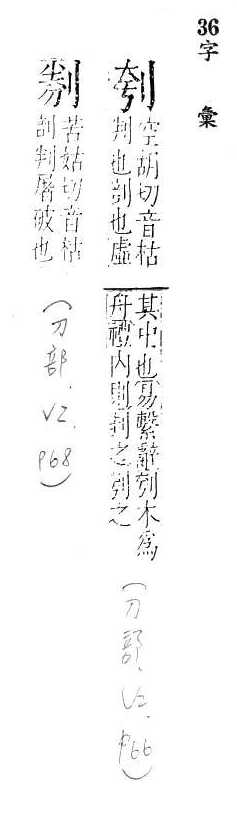 36字 彙
刳
空胡切音枯
判也剖也虛
其中也易繫辭刳木為
舟禮內則刲之刳之
(刀部. V2. P66)
苦姑切音枯
剖判屠破也
(刀部. V2. P68)